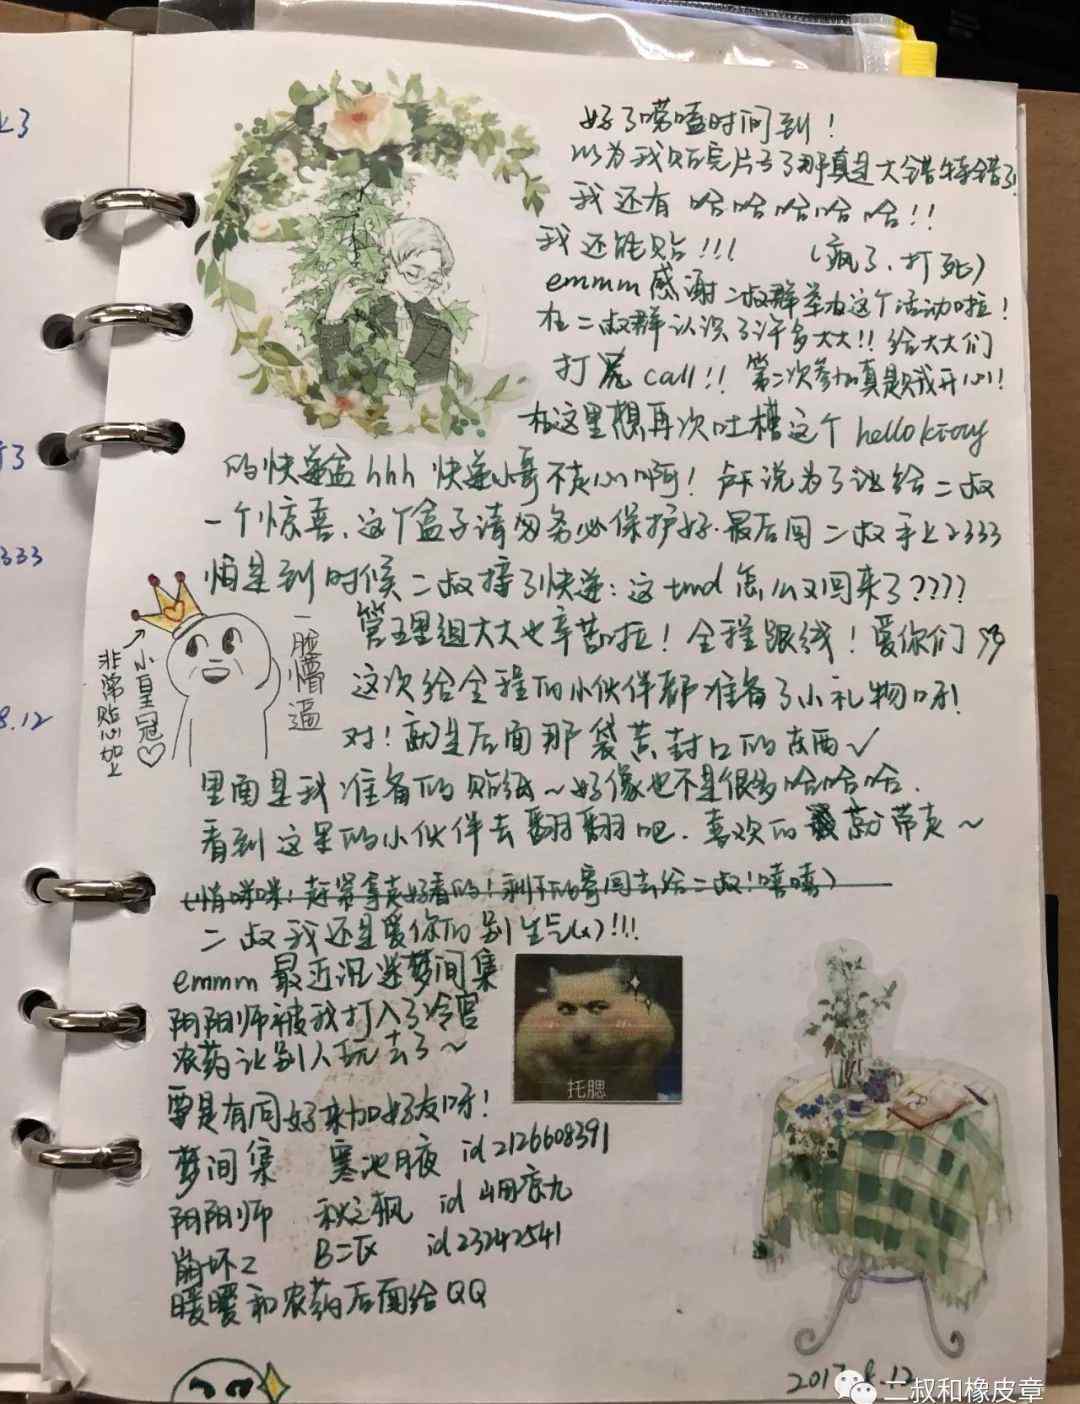 好了唠嗑时间到!
以为我贴完片子了那真是大错特错了!
我还有 哈哈哈哈哈!!
我还能贴!!! (疯了、打死)
emmm感谢二叔群举办这个活动啦!
在二叔群认识了许多大大!! 给大大们
打 call!! 第二次参加真是贼开心!
在这里想再次吐槽这个 hello kitty
的快递盒hhh 快递小哥不走心啊! 说为了让给二叔
一个惊喜、这个盒子请务必保护好.最后回二叔手上2333
怕是到时候二叔接了快递:这tmd怎么又回来了????
管理组大大也辛苦啦! 全程跟线! 爱你们
这次给全程的小伙伴都准备了小礼物呀!
对! 就是后面那袋 封口的东西✓
里面是我准备的贴纸~好像也不是很多哈哈哈.
看到这里的小伙伴去翻翻吧.喜欢的 带走~
(悄咪咪:赶紧拿走好看的!剩下的寄回去给二叔!嘻嘻)
二叔我还是爱你的别生气(x)!!!
emmm 最近沉迷梦间集
阴阳师被我打入了冷宫
农药让别人玩去了~
要是有同好来加好友呀!
梦间集 寒池月夜 id 2126608391
阴阳师 秋之枫 id
崩坏2 B二区 id23242541
暖暖和农药后面给QQ
一脸懵逼
小皇冠♡
非常贴心加上
托腮
上3
了3
333
8.12
2017.8.12
二叔和橡皮章